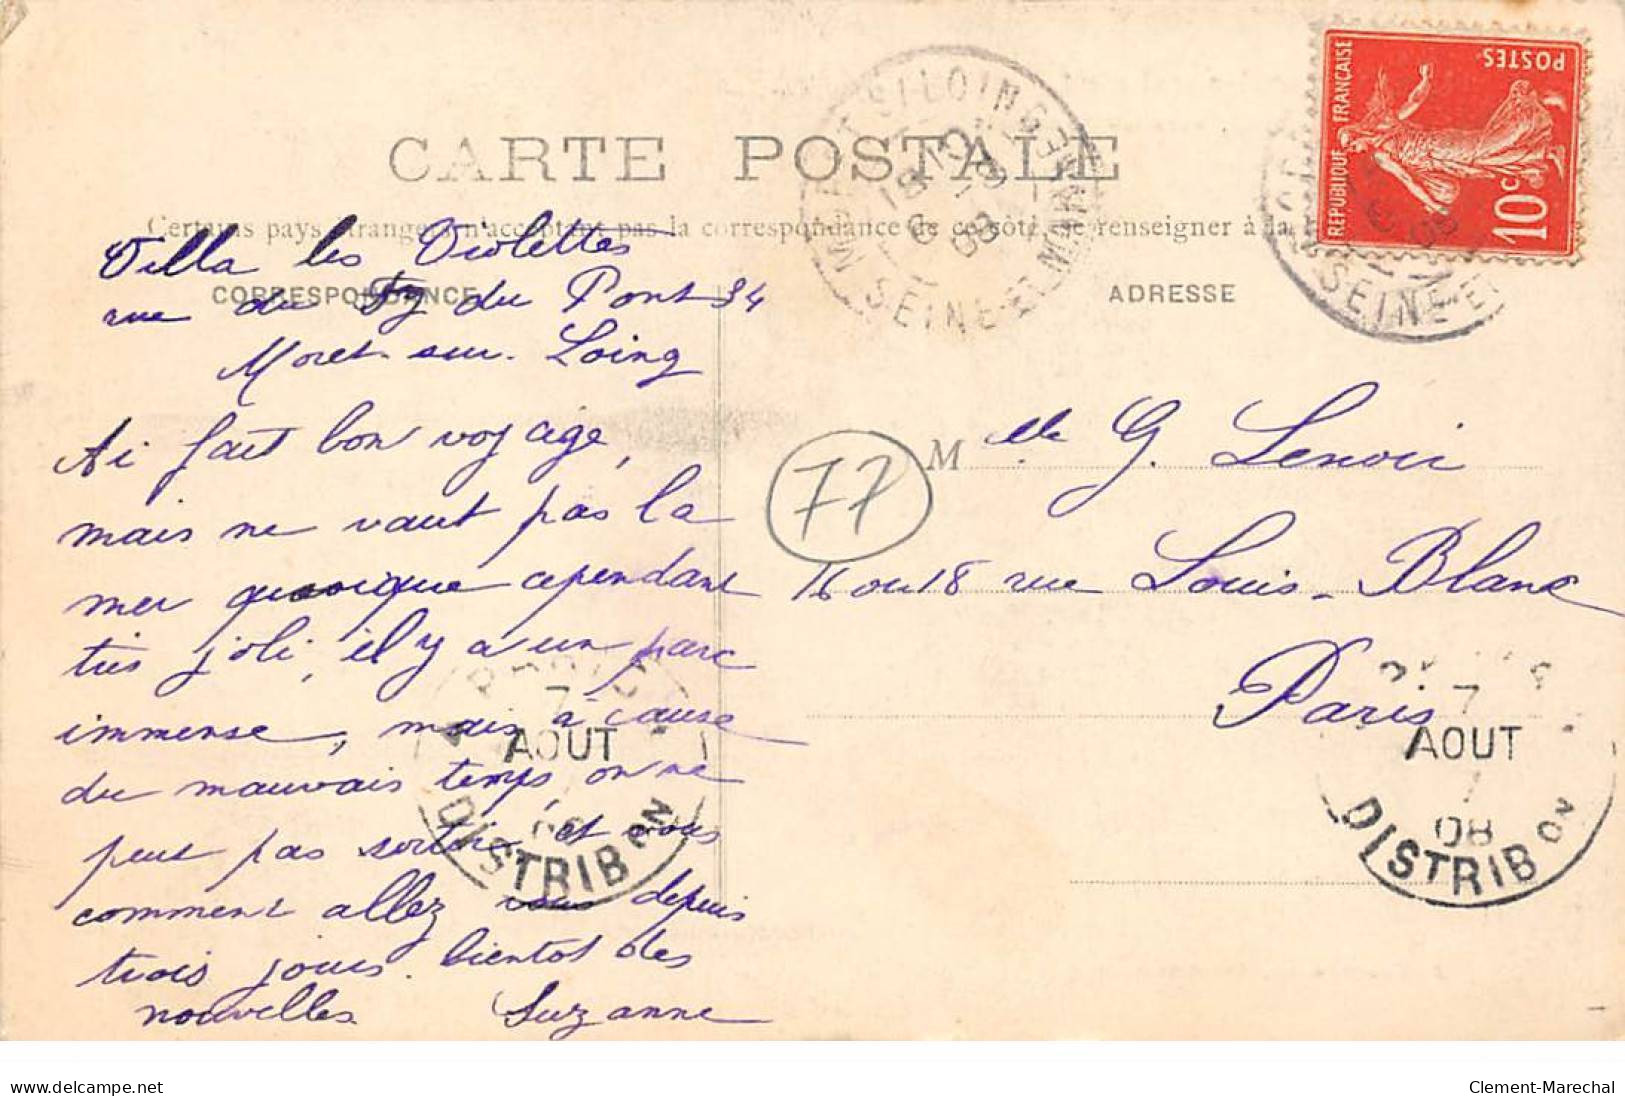 CARTE POSTALE
Certains pays étrangers n'acceptant pas la correspondance de ce côté, se renseigner à la
CORRESPONDANCE
ADRESSE
Villa les Violettes
rue du Fg du Pont 34
Moret-sur-Loing
Ai fait bon voyage,
mais ne vaut pas la
mer quoique cependant
très joli, il y a un parc
immense, mais à cause
du mauvais temps, on ne
peut pas sortir, et vous
comment allez vous depuis
trois jours. bientot des
nouvelles Suzanne
Mlle G. Lenoir
16 ou 18 rue Louis-Blanc
Paris
77
RÉPUBLIQUE FRANÇAISE
POSTES
10c
MORET-S-LOING
SEINE ET MARNE
SEINE ET
7
AOUT
08
DISTRIBON
7
AOUT
08
DISTRIBON
www.delcampe.net
Clement-Marechal